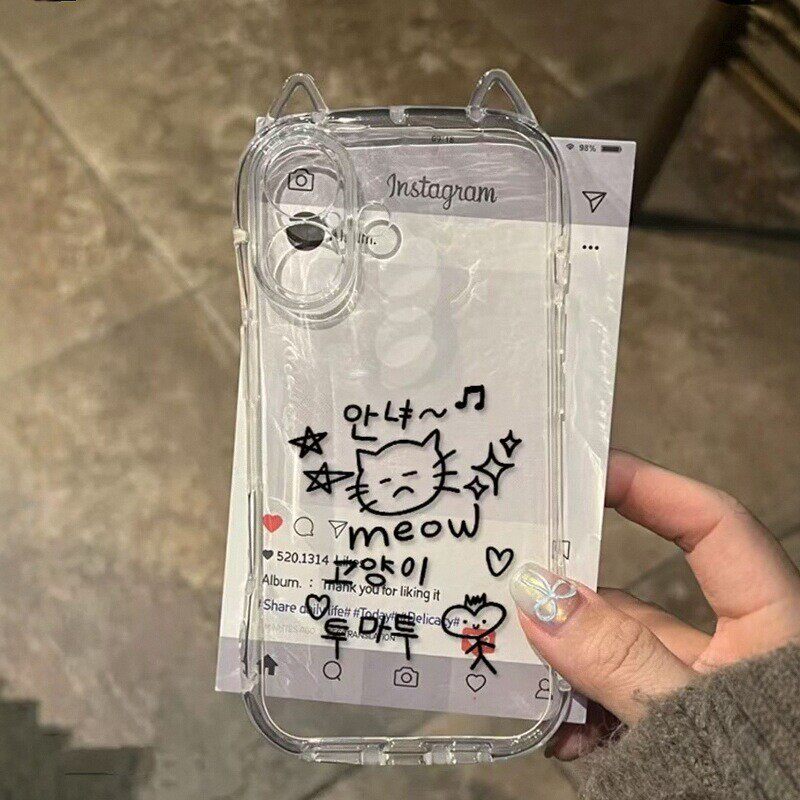 98%
Instagram
안녀~
meow
520.1314 Likes
고양이
Album. : Thank you for liking it
#Share daily life# #Today# #Delicacy#
투마투